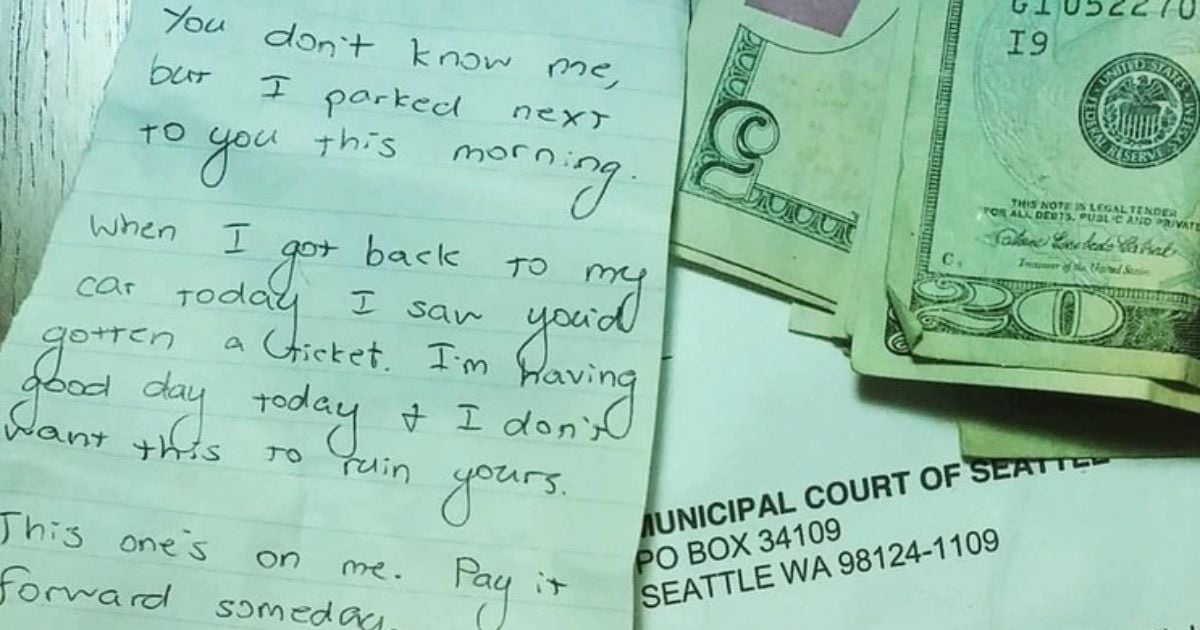 You don't know me,
but I parked next
to you this morning.
When I got back to my
car today I saw you'd
gotten a ticket. I'm having
good day today & I don't
want this to ruin yours.
This one's on me. Pay it
forward someday.
5
I9
UNITED STATES
FEDERAL RESERVE
THIS NOTE IS LEGAL TENDER
FOR ALL DEBTS, PUBLIC AND PRIVATE
Treasurer of the United States
20
MUNICIPAL COURT OF SEATTLE
PO BOX 34109
SEATTLE WA 98124-1109